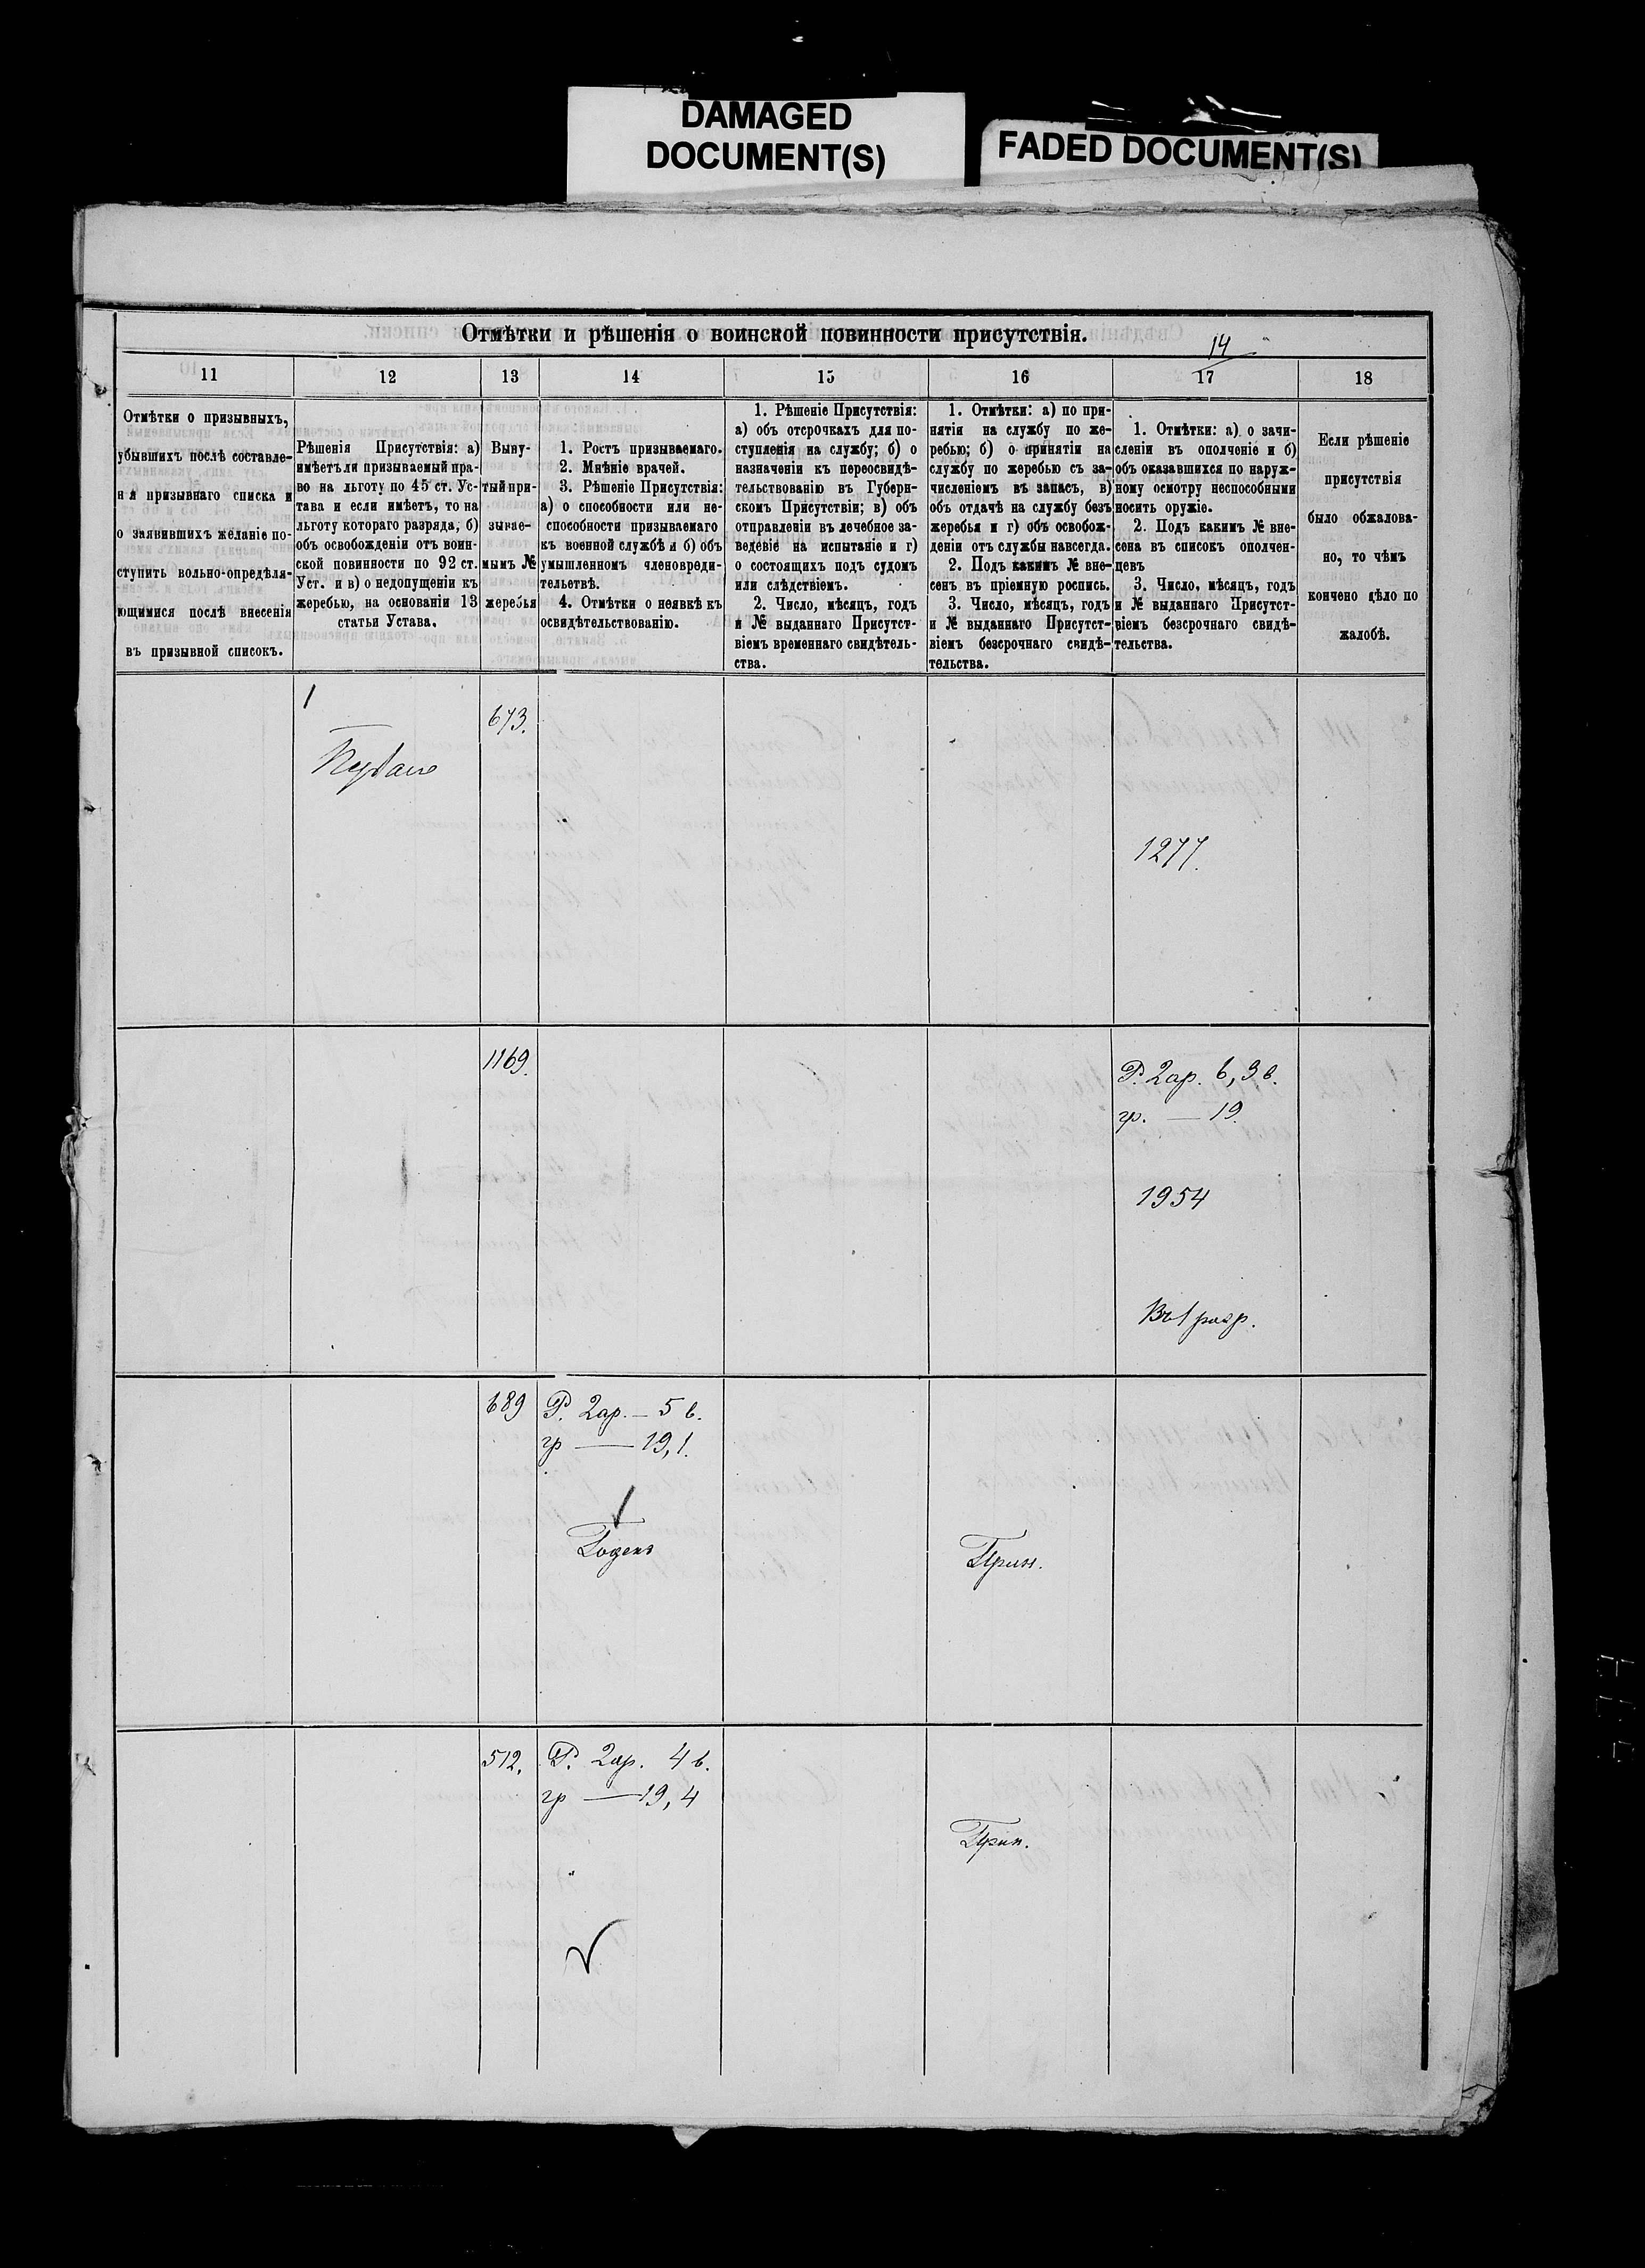 DAMAGED
DOCUMENT(S)
FADED DOCUMENT(S)
Отмѣтки и рѣшенія о воинской повинности присутствія.
14
11
12
13
14
15
16
17
18
Отмѣтки о призывныхъ,
убывшихъ послѣ составле-
нія призывнаго списка и
о заявившихъ желаніе по-
ступить вольно-опредѣля-
ющимися послѣ внесенія
въ призывной списокъ.
Рѣшенія Присутствія: а)
имѣетъ ли призываемый пра-
во на льготу по 45 ст. Ус-
тава и если имѣетъ, то на
льготу котораго разряда, б)
объ освобожденіи отъ воин-
ской повинности по 92 ст.
Уст. и в) о недопущеніи къ
жеребью, на основаніи 13
статьи Устава.
Выну-
тый при-
зывае-
мымъ №
жеребья
1. Ростъ призываемаго.
2. Мнѣніе врачей.
3. Рѣшеніе Присутствія:
а) о способности или не-
способности призываемаго
къ военной службѣ и б) объ
умышленномъ членовреди-
тельствѣ.
4. Отмѣтки о неявкѣ къ
освидѣтельствованію.
1. Рѣшеніе Присутствія:
а) объ отсрочкахъ для по-
ступленія на службу; б) о
назначеніи къ переосвидѣ-
тельствованію въ Губерн-
скомъ Присутствіи; в) объ
отправленіи въ лечебное за-
веденіе на испытаніе и г)
о состоящихъ подъ судомъ
или слѣдствіемъ.
2. Число, мѣсяцъ, годъ
и № выданнаго Присутст-
віемъ временнаго свидѣтель-
ства.
1. Отмѣтки: а) по при-
нятіи на службу по же-
ребью; б) о принятіи на
службу по жеребью съ за-
численіемъ въ запасъ, в)
объ отдачѣ на службу безъ
жеребья и г) объ освобож-
деніи отъ службы навсегда.
2. Подъ какимъ № вне-
сенъ въ пріемную роспись.
3. Число, мѣсяцъ, годъ
и № выданнаго Присутст-
віемъ безсрочнаго свидѣ-
тельства.
1. Отмѣтки: а) о зачи-
сленіи въ ополченіе и б)
объ оказавшихся по наруж-
ному осмотру неспособными
носить оружіе.
2. Подъ какимъ № вне-
сена въ списокъ ополчен-
цевъ
3. Число, мѣсяцъ, годъ
и № выданнаго Присутст-
віемъ безсрочнаго свидѣ-
тельства.
Если рѣшеніе
присутствія
было обжалова-
но, то чѣмъ
кончено дѣло по
жалобѣ.
1
673.
1277.
1169.
Р. 2ар. 6,3в.
гр. — 19.
1954
Въ 1 разр.
689
Р. 2ар. — 5 в.
гр — 19,1.
Годенъ
Прин.
512.
Р. 2ар. 4 в.
гр — 19,4
Прин.